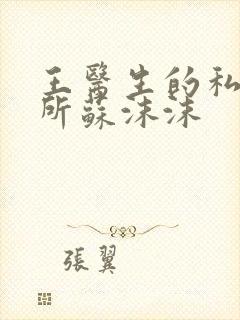 王醫生的私
所蘇沫沫
張翼